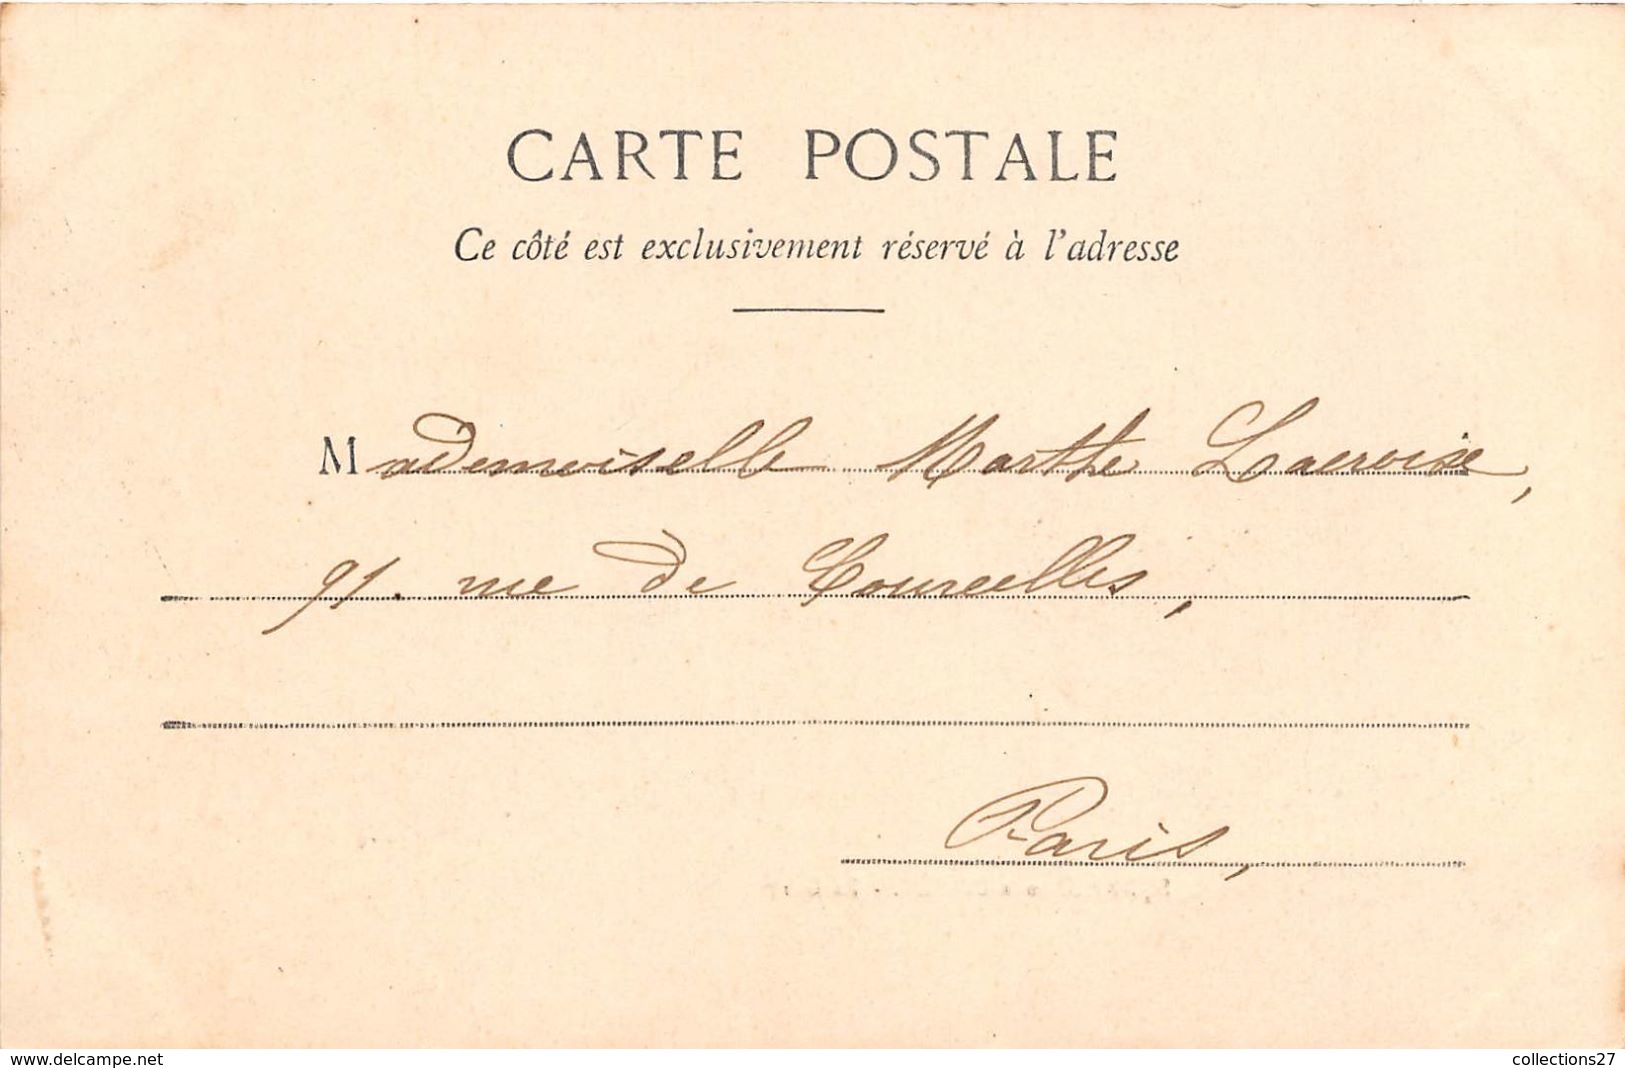 CARTE POSTALE
Ce côté est exclusivement réservé à l'adresse
Mademoiselle Marthe Lacroix,
91. rue de Courcelles,
Paris,
www.delcampe.net
collections27